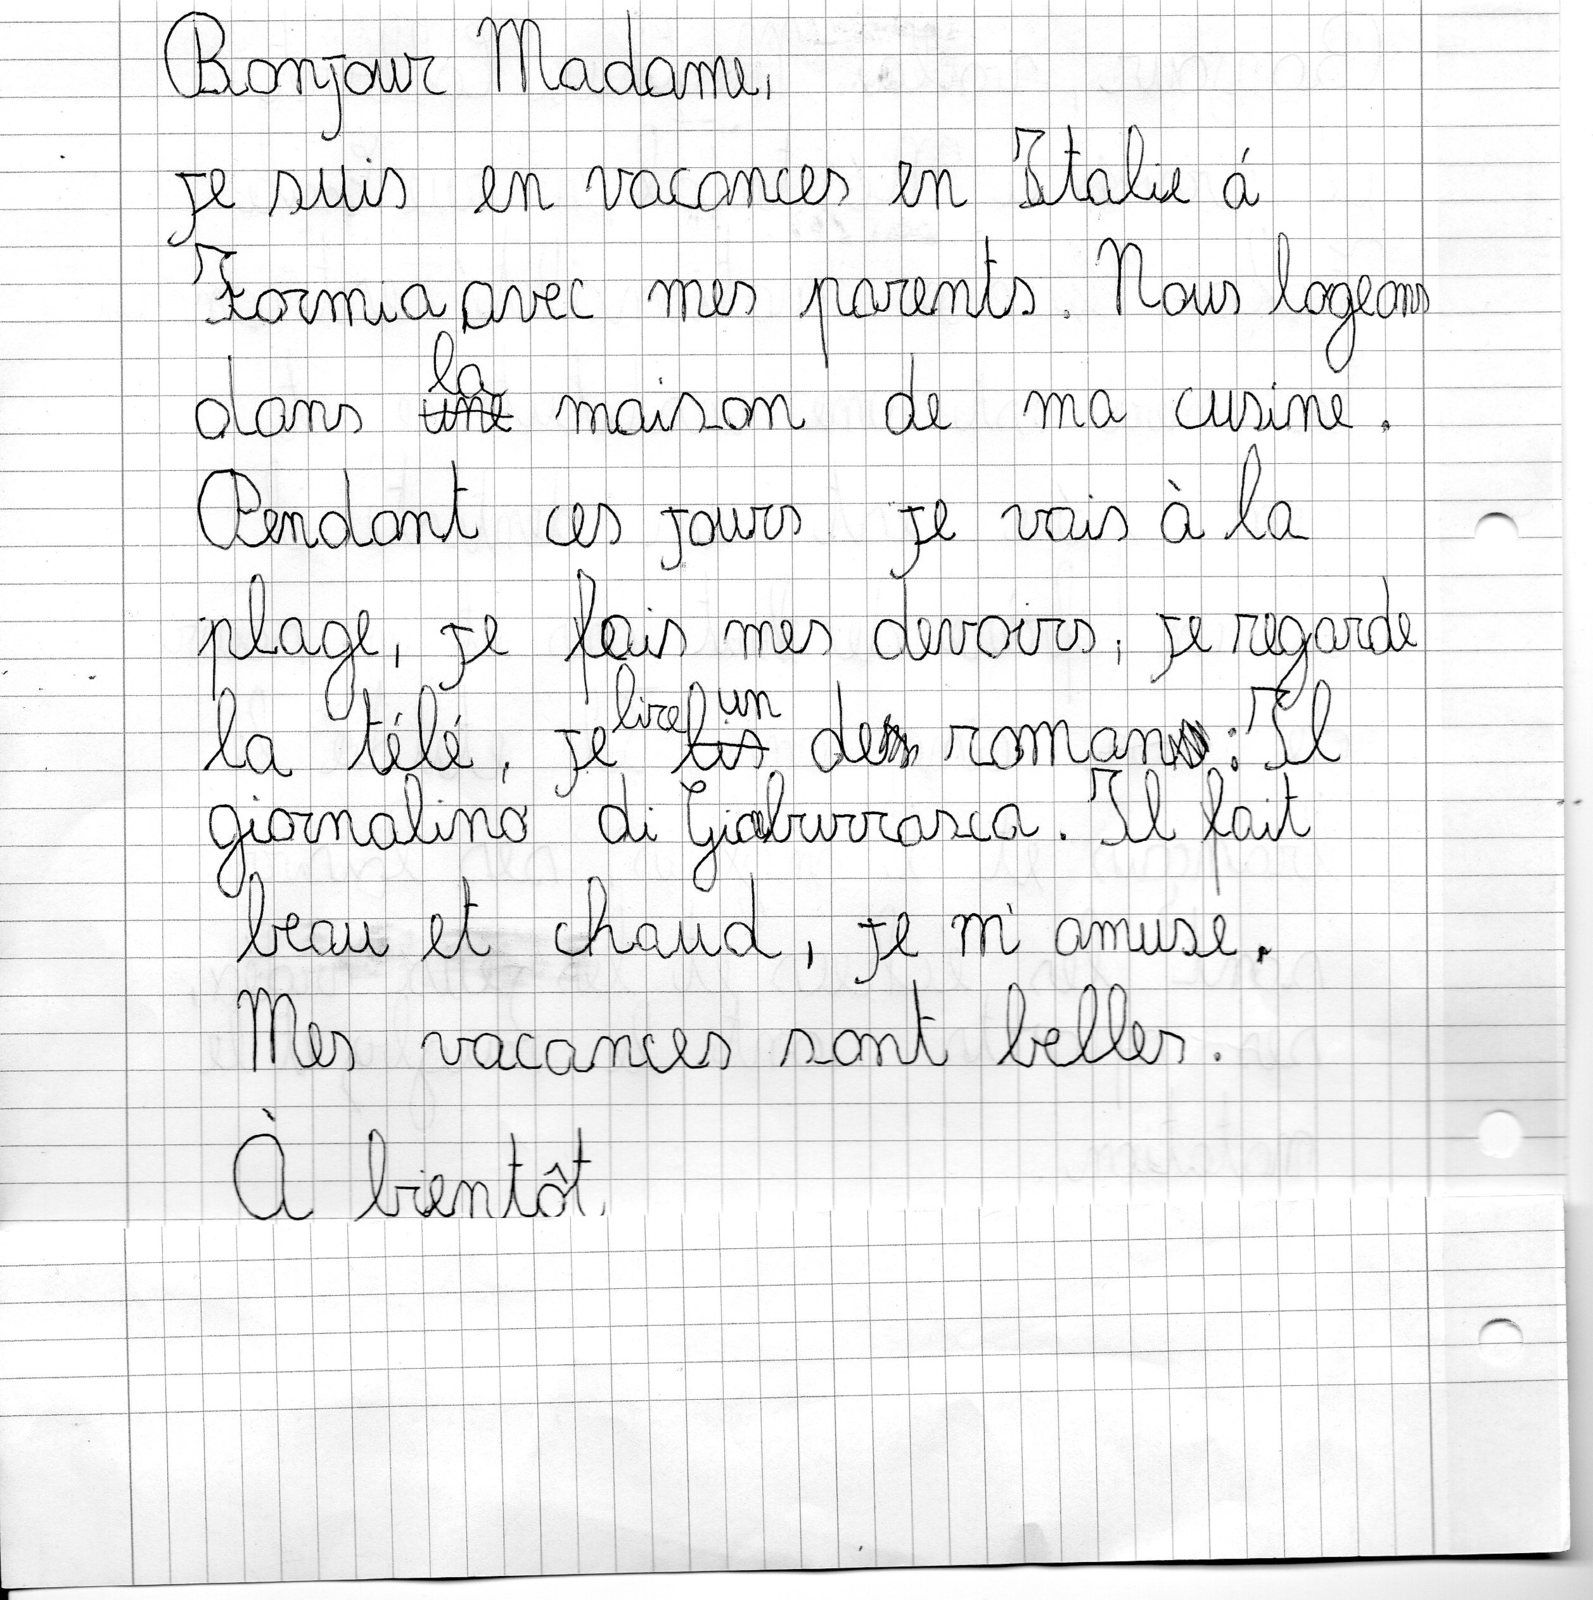 Bonjour Madame,
je suis en vacances en Italie á
Formia avec mes parents. Nous logeons
dans la maison de ma cusine.
Pendant ces jours je vais à la
plage, je fais mes devoirs, je regarde
la télé, je lire un de roman: Il
giornalino di Giaburrasca. Il fait
beau et chaud, je m'amuse.
Mes vacances sont belles.
À bientôt.